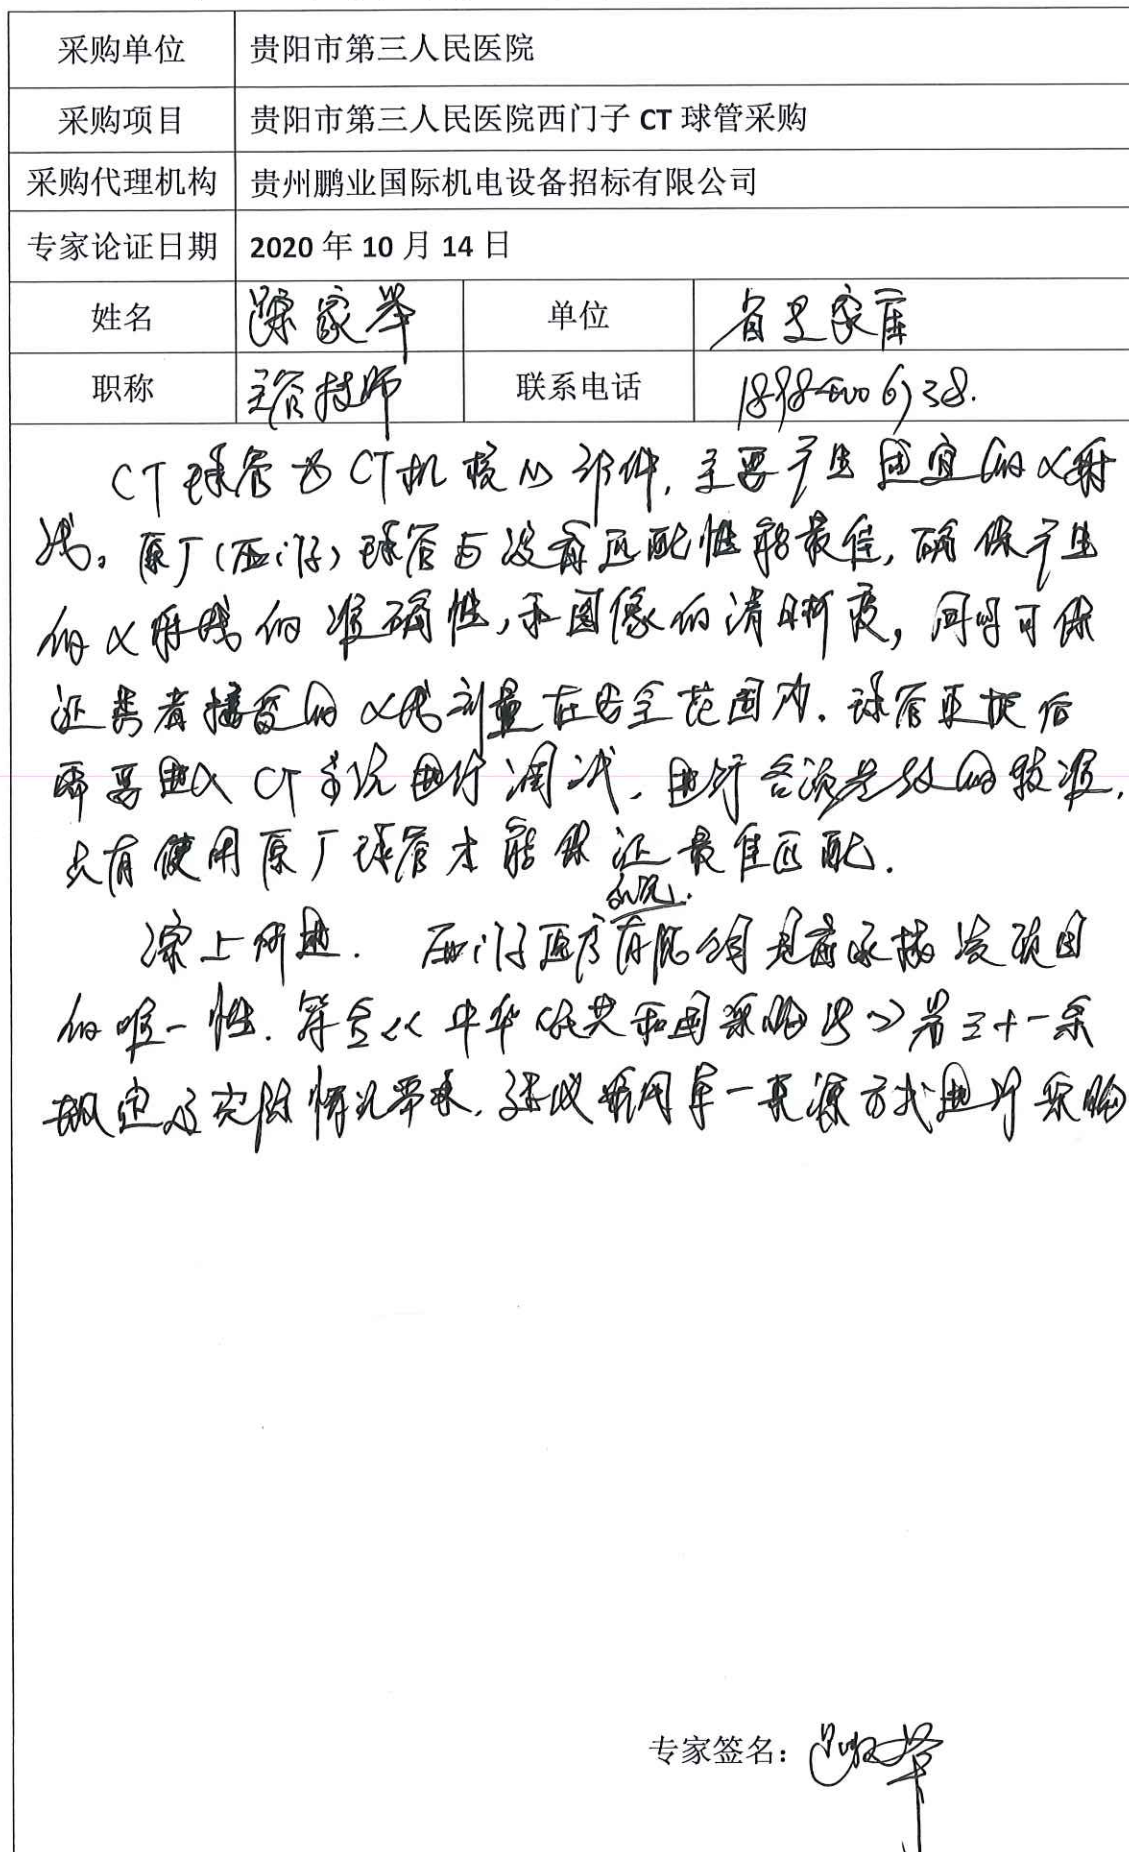 采购单位 贵阳市第三人民医院
采购项目 贵阳市第三人民医院西门子 CT 球管采购
采购代理机构 贵州鹏业国际机电设备招标有限公司
专家论证日期 2020 年 10 月 14 日
姓名 家举 单位 省专家库
职称 主管技师 联系电话
CT球管为CT机核心部件,主要产生适宜的X射
线。原厂(西门子)球管与设备匹配性能最佳,确保产生
的X射线的准确性,和图像的清晰度,同时可保
证患者接受的X线剂量在安全范围内.球管更换后
需要进入CT系统进行调试,进行各项参数的校准,
只有使用原厂球管才能保证最佳匹配.
综上所述. 西门子医疗有限公司是承接该项目
的唯一性.符合《中华人民共和国采购法》第三十一条
规定及实际情况要求,建议采用单一来源方式进行采购
专家签名: